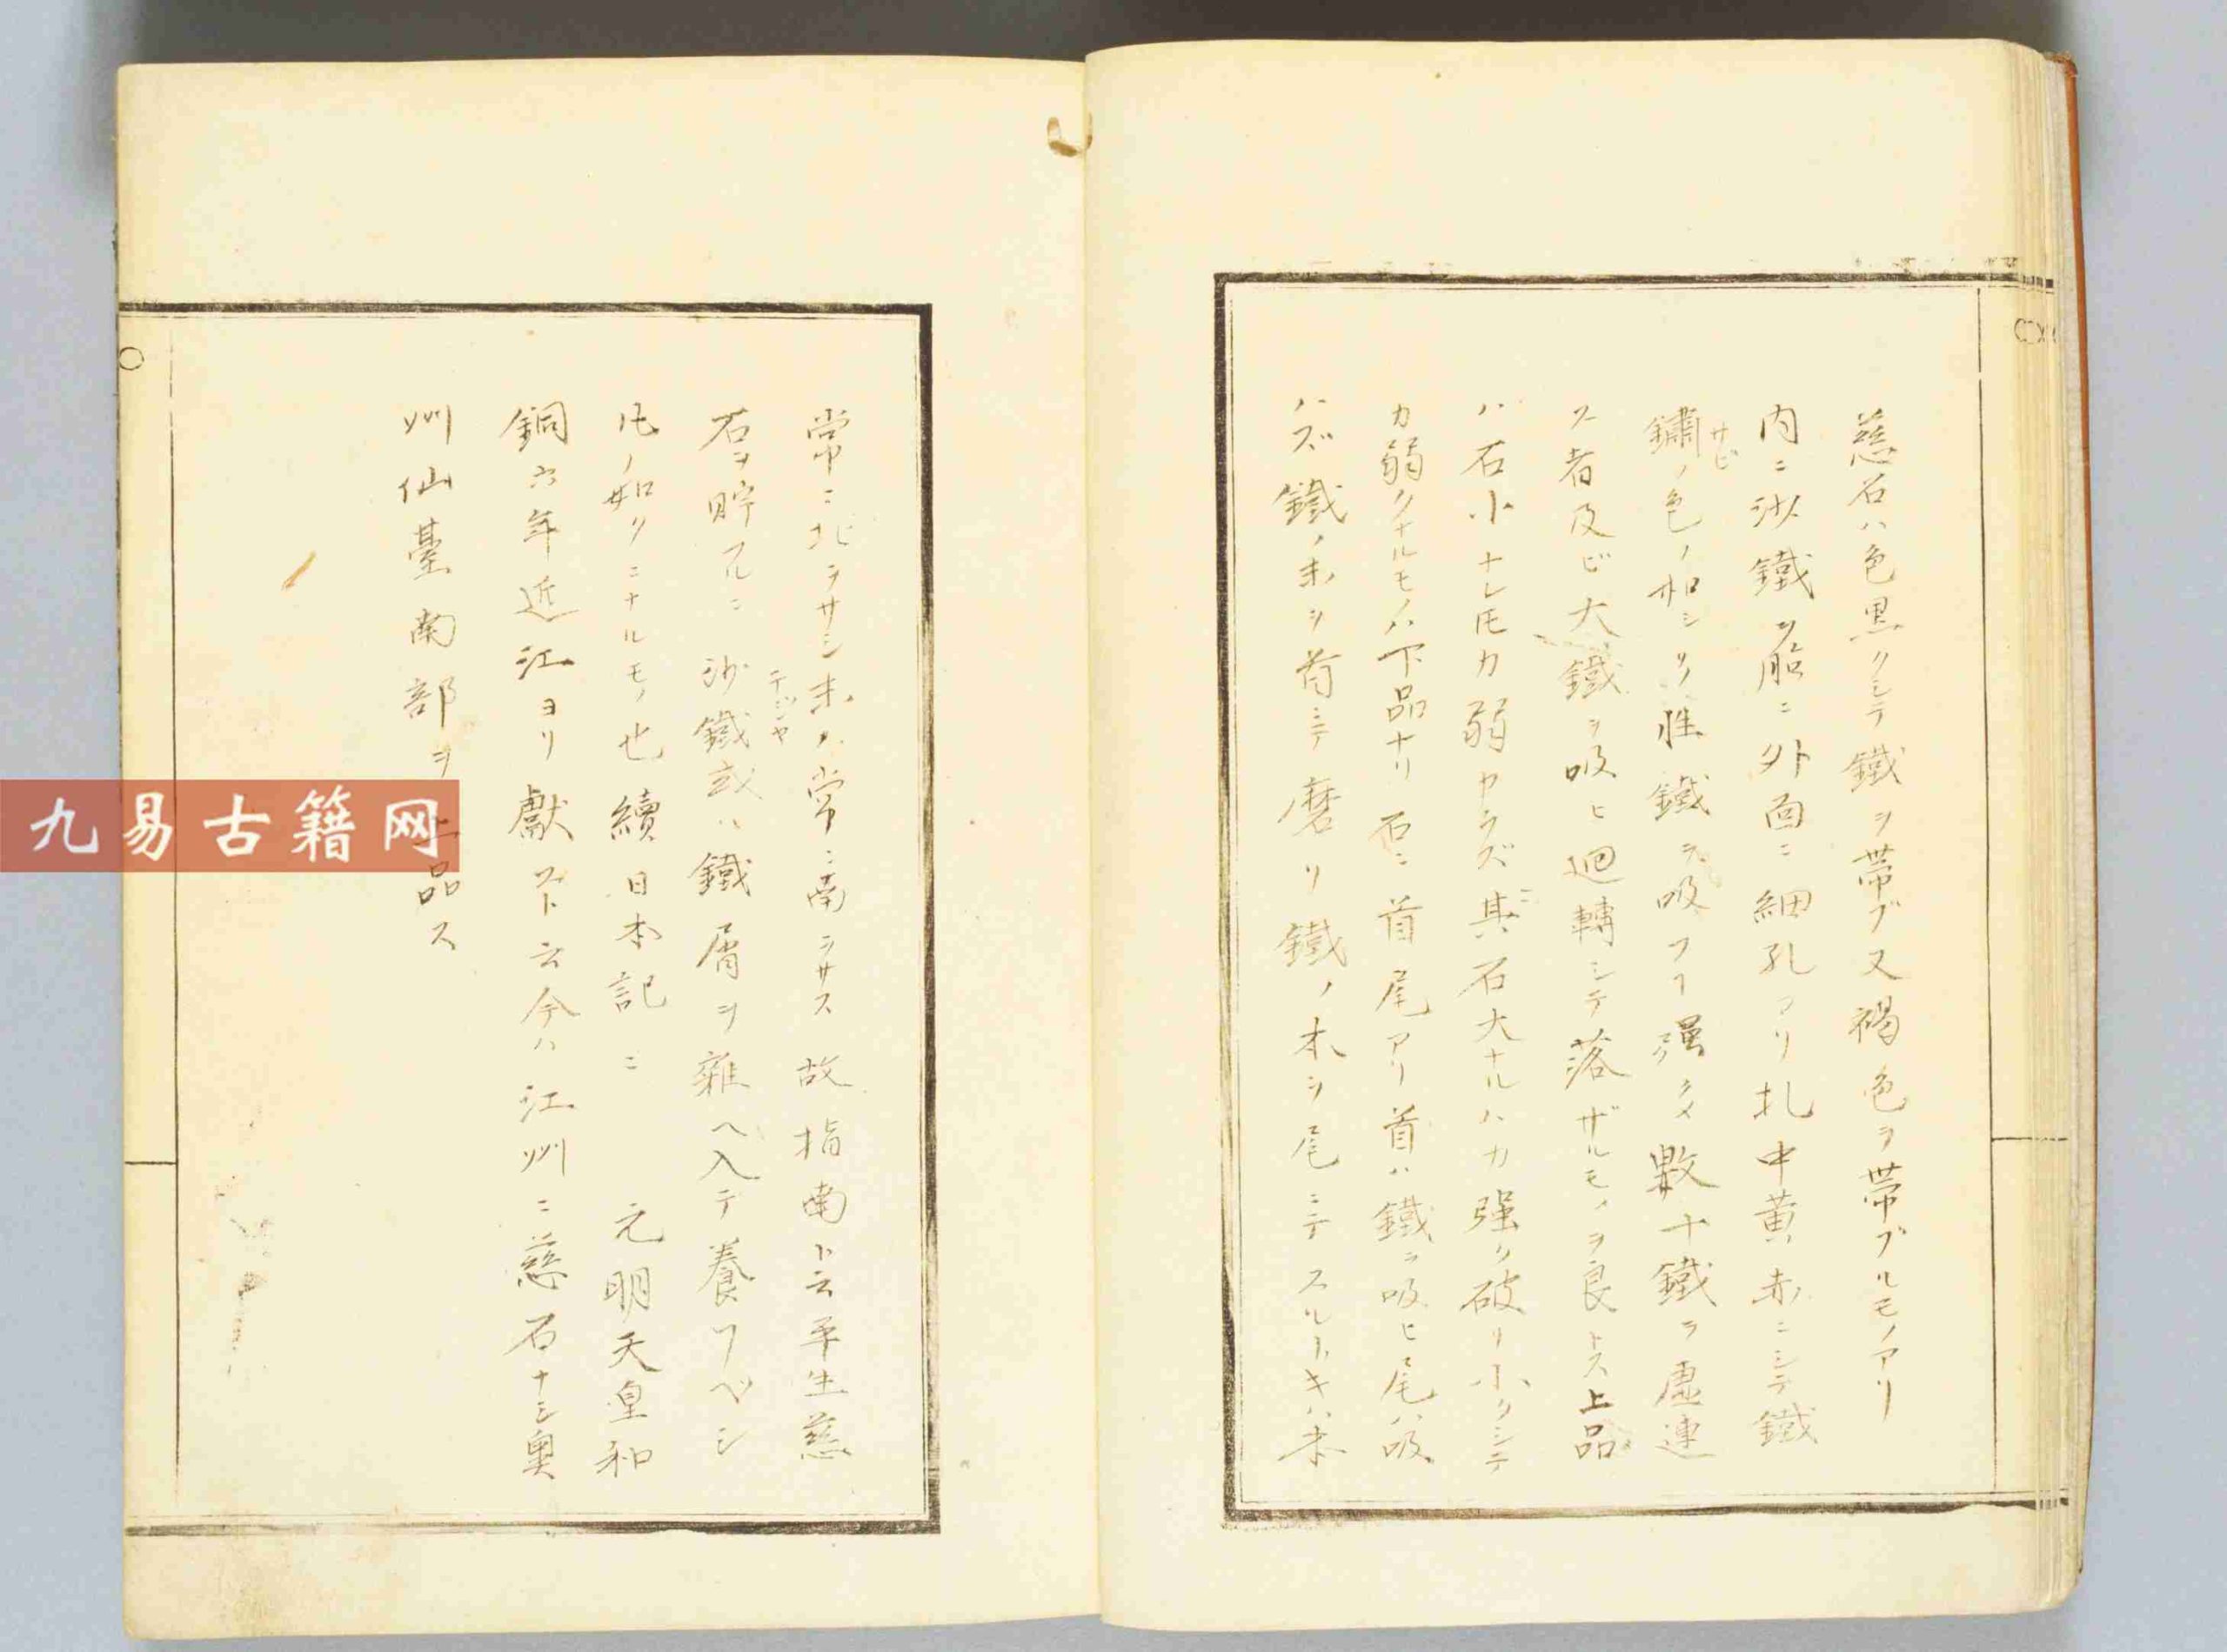 慈石ハ色黒クシテ鐵ヲ帯ブ又褐色ヲ帯ブルモノアリ
内ニ沙鐵ヲ胎ニ外面ニ細孔アリ孔中黄赤ニシテ鐵
サビ
鏽ノ色ノ如シ性鐵ヲ吸フ强クメ數十鐵ヲ虚連
ス者及ビ大鐵ヲ吸ヒ廻轉シテ落ザルモノヲ良トス上品
ハ石小ナレ𪜈力弱カラズ其石大ナルハ力强ク破リ小クシテ
力弱クナルモノハ下品ナリ石ニ首尾アリ首ハ鐵ヲ吸ヒ尾ハ吸
ハズ鐵ノ末ヲ首ニテ磨リ鐵ノ本ヲ尾ニテスルトキハ末
常ニ北ヲサシ末ハ常ニ南ヲサス故指南ト云平生慈
石ヲ貯フルニ沙鐵或ハ鐵屑ヲ雜ヘ入テ養フベシ
テツシヤ
ノ如クニナルモノ也續日本記ニ元明天皇和
銅六年近江ヨリ獻ツト云今ハ江州ニ慈石ナシ奥
州仙臺南部ヲ上品ス
九易古籍网